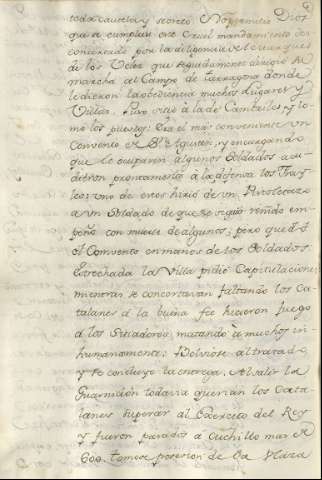 toda cautela y secreto. No permitio Dios
que se cumpliese este Cruel mandamiento des
concertado por la diligencia del Marques
de los Velez que aguadamente dirigio la
marcha al Campo de Tarragona donde
le dieron la obediencia muchos Lugares y
Villas. Puso sitio à la de Cambrils y to-
mò los puestos: Era el mas conveniente un
Convento de Sn. Agustin, y encargando
que le ocupasen algunos Soldados acu-
dieron prontamente à la defensa los Fray-
les; uno de estos hiriò de un Pistoletazo
a un Soldado de que se siguio reñido em-
peño con muerte de algunos; pero quedò
el Convento en manos de los Soldados
Estrechada la Villa pidio Capitulaciones
mientras se concertavan faltando los Ca-
talanes à la buena fee hicieron fuego
à los Sitiadores, matando à muchos in-
humanamente; Bolviose al tratado
y se concluyo la entrega; Al salir la
Guarnicion todavia querian los Cata-
lanes superar al Exercito del Rey
y fueron pasados a cuchillo mas de
600. tomose posesion de la Plaza